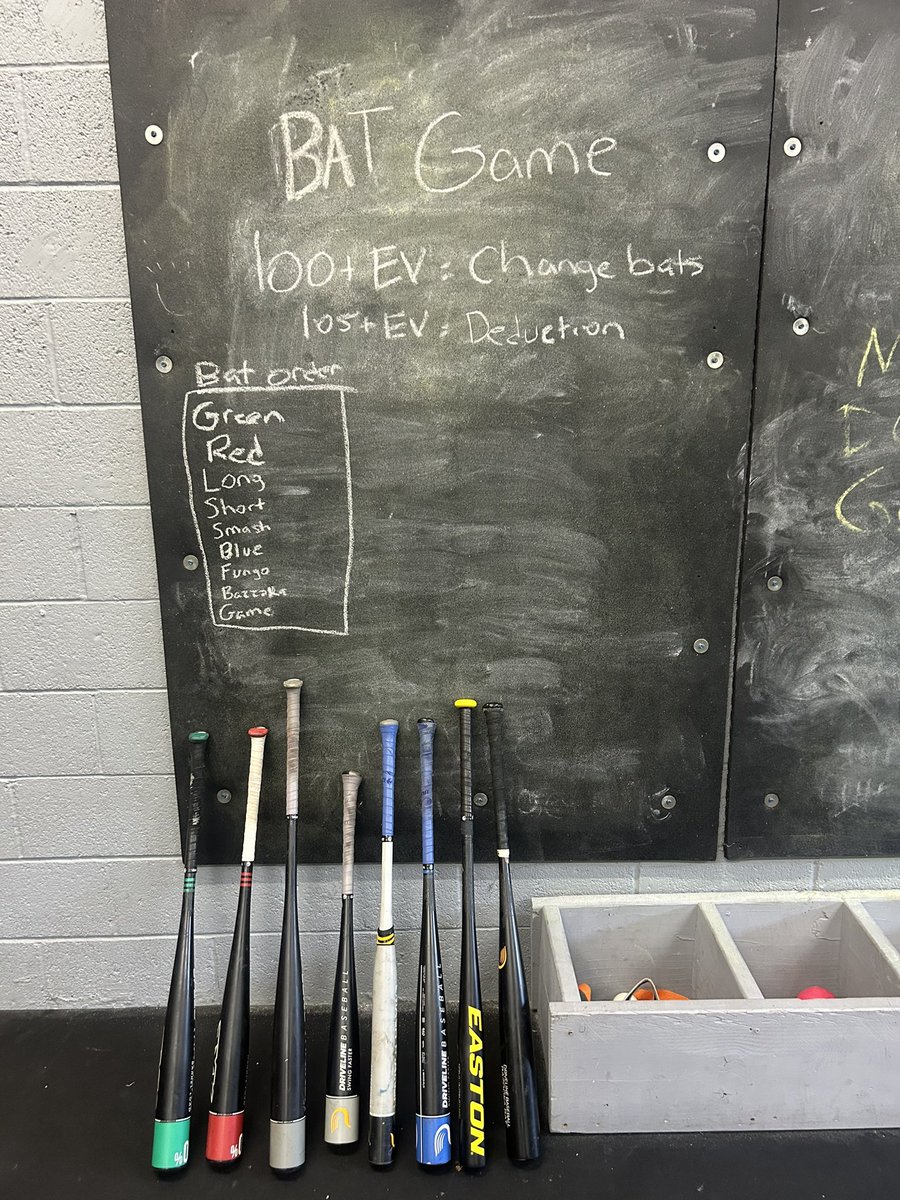 BAT Game
100+ EV = Change bats
105+ EV = Deduction
Bat order
Green
Red
Long
Short
Smash
Blue
Fungo
Bazzoka
Game
N
G
DRIVELINE BASEBALL
SWING FASTER
DRIVELINE BASEBALL
EASTON